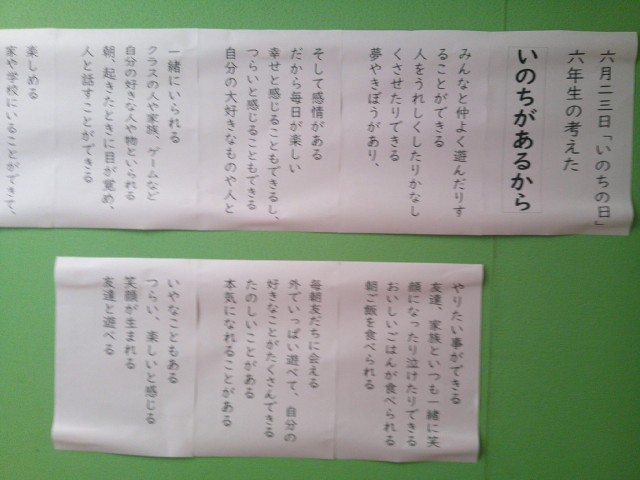 六月二三日「いのちの日」
六年生の考えた
いのちがあるから
みんなと仲よく遊んだりす
ることができる
人をうれしくしたりかなし
くさせたりできる
夢やきぼうがあり、
そして感情がある
だから毎日が楽しい
幸せと感じることもできるし、
つらいと感じることもできる
自分の大好きなものや人と
一緒にいられる
クラスの人や家族、ゲームなど
自分の好きな人や物といられる
朝、起きたときに目が覚め、
人と話すことができる
楽しめる
家や学校にいることができて、
やりたい事ができる
友達、家族といつも一緒に笑
顔になったり泣けたりできる
おいしいごはんが食べられる
朝ご飯を食べられる
毎朝友だちに会える
外でいっぱい遊べて、自分の
好きなことがたくさんできる
たのしいことがある
本気になれることがある
いやなこともある
つらい、楽しいと感じる
笑顔が生まれる
友達と遊べる